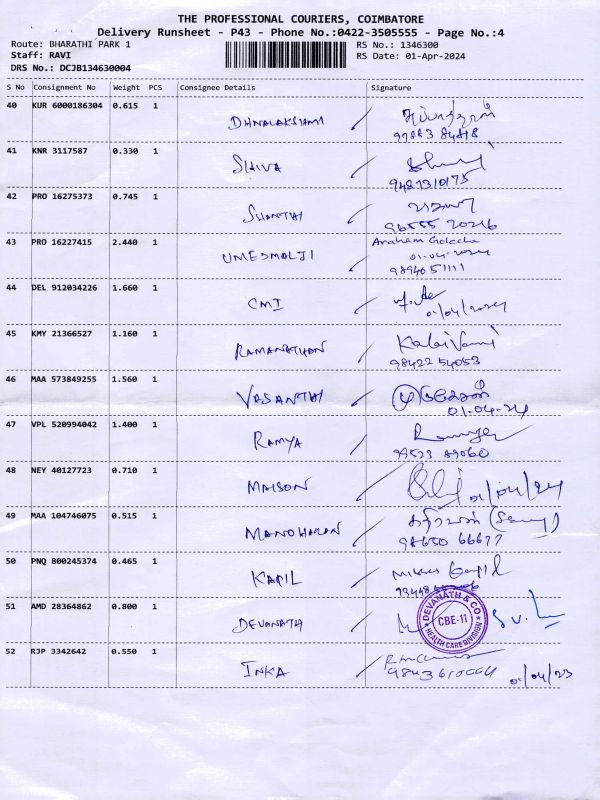 THE PROFESSIONAL COURIERS, COIMBATORE
Delivery Runsheet - P43 - Phone No.:0422-3505555 - Page No.:4
Route: BHARATHI PARK 1 RS No.: 1346300
Staff: RAVI RS Date: 01-Apr-2024
DRS No.: DCJB134630004
S No Consignment No Weight PCS Consignee Details Signature
40 KUR 6000186304 0.615 1 DHNALAKSHMI
41 KNR 3117587 0.330 1 SHIVA
9487310175
42 PRO 16275373 0.745 1 SHANTHI
96555 20216
43 PRO 16227415 2.440 1 UMESMALJI Araham Golecha
01-04-2024
9894051111
44 DEL 912034226 1.660 1 CMI
01/04/2024
45 KMY 21366527 1.160 1 RAMANATHAN Kalaivani
98422 54053
46 MAA 573849255 1.560 1 VASANTHI
01.04.24
47 VPL 520994042 1.400 1 RAMYA Ramya
99523 89060
48 NEY 40127723 0.710 1 MAISON 01/04/24
49 MAA 104746075 0.515 1 MANOHARAN
98650 66677
50 PNQ 800245374 0.465 1 KAPIL
51 AMD 28364862 0.800 1 DEVANATH DEVANATH & CO CBE-11 HEALTH CARE DIVISION
52 RJP 3342642 0.550 1 INKA
01/04/23